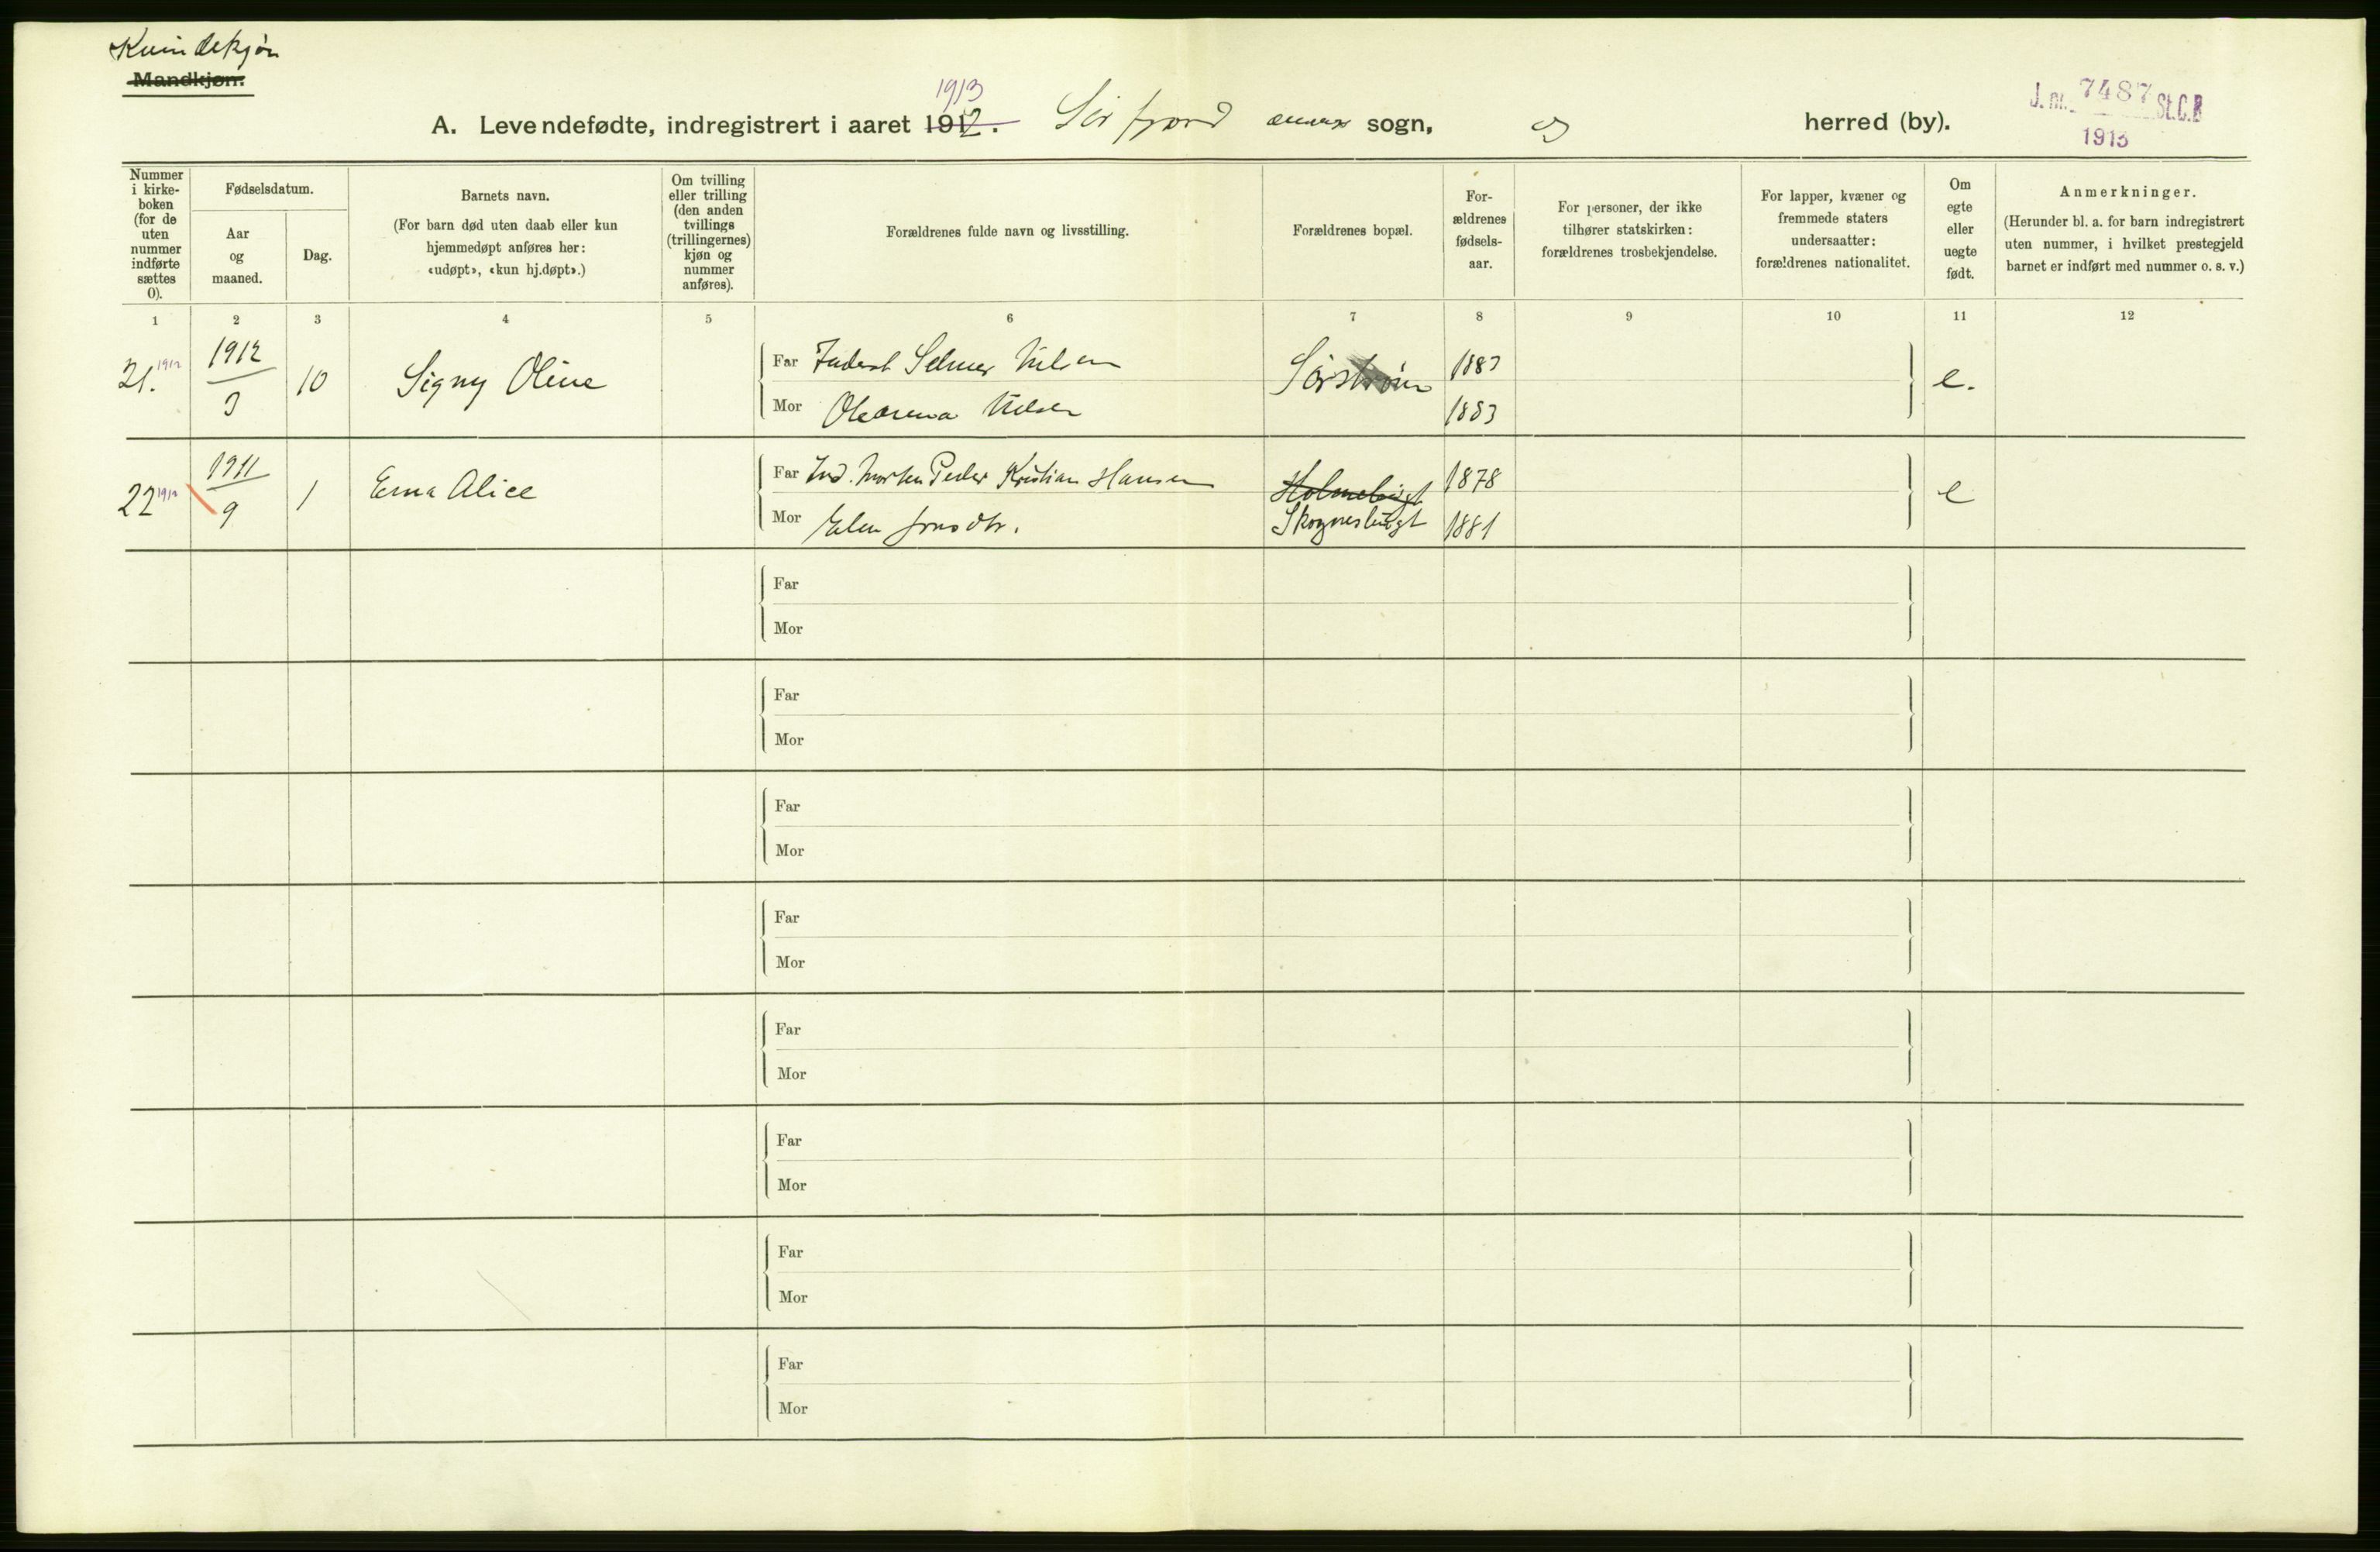 Kvindekjøn
Mandkjøn.
1913
A. Levendefødte, indregistrert i aaret 1912. Sørfjord annex sogn, og herred (by).
J. nr. 7487 St.C.B
1913
Nummer i kirkeboken (for de uten nummer indførte sættes 0).
Fødselsdatum.
Aar og maaned.
Dag.
Barnets navn.
(For barn død uten daab eller kun hjemmedøpt anføres her: «udøpt», «kun hj.døpt».)
Om tvilling eller trilling (den anden tvillings (trillingernes) kjøn og nummer anføres).
Forældrenes fulde navn og livsstilling.
Forældrenes bopæl.
Forældrenes fødselsaar.
For personer, der ikke tilhører statskirken: forældrenes trosbekjendelse.
For lapper, kvæner og fremmede staters undersaatter: forældrenes nationalitet.
Om egte eller uegte født.
Anmerkninger.
(Herunder bl. a. for barn indregistrert uten nummer, i hvilket prestegjeld barnet er indført med nummer o. s. v.)
1 2 3 4 5 6 7 8 9 10 11 12
21. 1912 1912/3 10 Signy Oline Far Inderst Selmer Nilsen Sørstrøm 1883 e.
Mor Nilsen 1883
22 1912 1911/9 1 Erna Alice Far Ind. Morten Peder Kristian Hansen Holmebugt 1878 e
Mor Elen Skognesbugt 1881
Far
Mor
Far
Mor
Far
Mor
Far
Mor
Far
Mor
Far
Mor
Far
Mor
Far
Mor